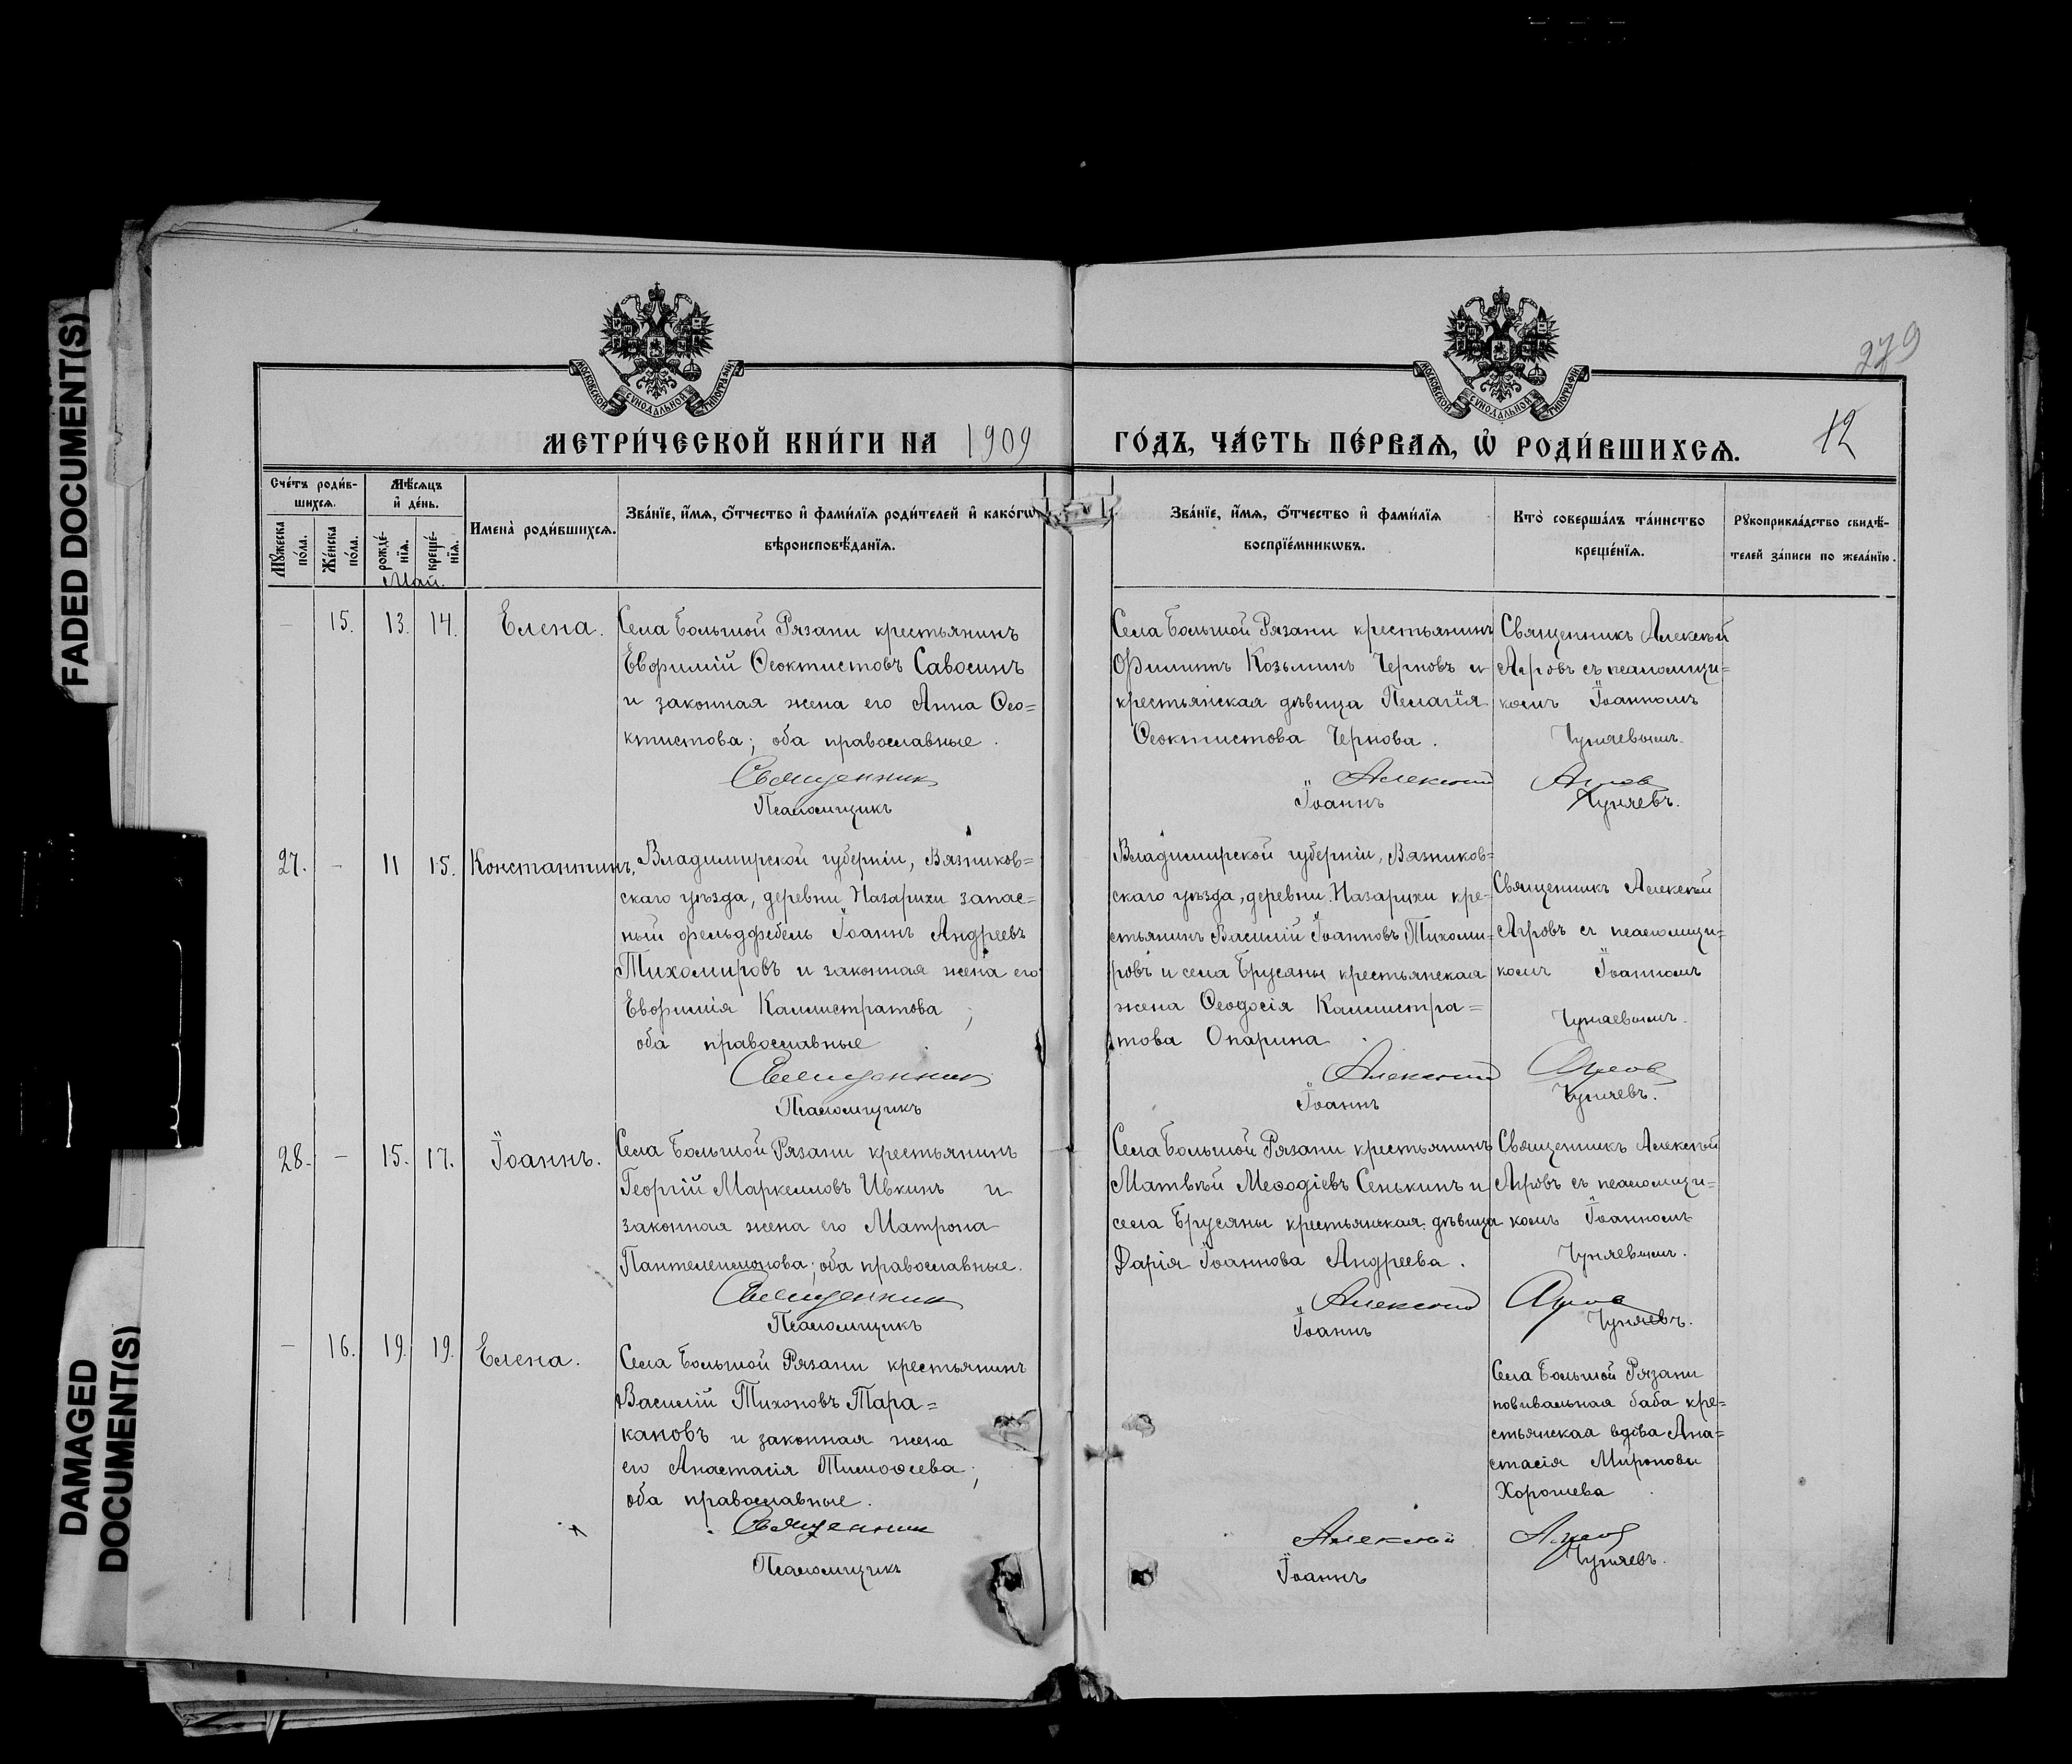 FADED DOCUMENT(S)
DAMAGED
DOCUMENT(S)
МОСКОВСКОЙ СѴНОДАЛЬНОЙ ТИПОГРАФІИ
МОСКОВСКОЙ СѴНОДАЛЬНОЙ ТИПОГРАФІИ
279
МЕТРИ́ЧЕСКОЙ КНИ́ГИ НА 1909
ГО́ДЪ, ЧА́СТЬ ПЕ́РВАѦ, Ѡ҆ РОДИ́ВШИХСѦ.
12
Сче́тъ роди́в-
шихсѧ.
Мꙋ́жеска
по́ла.
Же́нска
по́ла.
Мѣ́сѧцъ
и҆ де́нь.
рожде́-
нїѧ.
креще́-
нїѧ.
Май.
Имена̀ роди́вшихсѧ.
Зва́нїе, и҆́мѧ, ѻ҆́тчество и҆ фами́лїѧ роди́телей и҆ како́гѡ
вѣроисповѣ́данїѧ.
Зва́нїе, и҆́мѧ, ѻ҆́тчество и҆ фами́лїѧ
воспрїе́мникѡвъ.
Кто̀ соверша́лъ та́инство
креще́нїѧ.
Рꙋкоприкла́дство свидѣ́-
телей за́писи по жела́нїю.
– 15. 13. 14. Елена.
Села Большой Рязани крестьянинъ
Евфимій Ѳеоктистовъ Савосинъ
и законная жена его Анна Ѳео=
ктистова; оба православные.
Священник
Псаломщикъ
Села Большой Рязани крестьянинъ
Филиппъ Козьминъ Черновъ и
крестьянская дѣвица Пелагія
Ѳеоктистова Чернова.
Алексий
Іоаннъ
Священникъ Алексѣй
Агровъ съ псаломщи=
комъ Іоанномъ
Чуняевымъ.
Агров
Чуняевъ.
27. – 11 15. Константинъ.
Владимирской губерніи, Вязников=
скаго уѣзда, деревни Назарихи запас=
ный фельдфебель Іоаннъ Андреевъ
Тихомировъ и законная жена его
Евфимія Каллистратова;
оба православные.
Священник
Псаломщикъ
Владимирской губерніи, Вязников=
скаго уѣзда, деревни Назарихи кре=
стьянинъ Василій Іоанновъ Тихоми=
ровъ и села Брусяны крестьянская
жена Ѳеодосія Каллистра=
това Опарина.
Алексий
Іоаннъ
Священникъ Алексѣй
Агровъ съ псаломщи=
комъ Іоанномъ
Чуняевымъ.
Агров
Чуняевъ.
28. – 15. 17. Іоаннъ.
Села Большой Рязани крестьянинъ
Георгій Маркелловъ Ивкинъ и
законная жена его Матрона
Пантелеимонова; оба православные.
Священник
Псаломщикъ
Села Большой Рязани крестьянинъ
Матвѣй Меѳодіевъ Сенькинъ и
села Брусяны крестьянская дѣвица
Дарія Іоаннова Андреева.
Алексий
Іоаннъ
Священникъ Алексѣй
Агровъ съ псаломщи=
комъ Іоанномъ
Чуняевымъ.
Агров
Чуняевъ.
– 16. 19. 19. Елена.
Села Большой Рязани крестьянинъ
Василій Тихоновъ Тара=
кановъ и законная жена
его Анастасія Тимоѳеева;
оба православные.
Священник
Псаломщикъ
Алексий
Іоаннъ
Села Большой Рязани
повивальная баба кре=
стьянская вдова Ана=
стасія Миронова
Хорошева.
Агров
Чуняевъ.